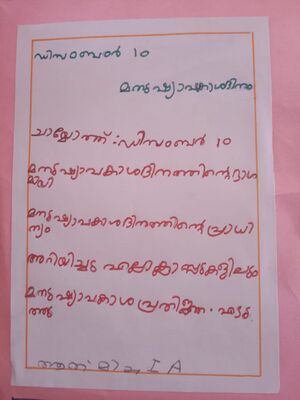 ഡിസംബർ 10
മനുഷ്യാവകാശദിനം
ചായ്യോത്ത് : ഡിസംബർ 10
മനുഷ്യാവകാശദിനത്തിന്റെ ഭാഗ
മായി
മനുഷ്യാവകാശദിനത്തിന്റെ പ്രാധാ
ന്യം
അറിയിച്ചു എല്ലാ ക്ലാസുകളിലും
മനുഷ്യാവകാശ പ്രതിജ്ഞ എടു
ത്തു
I A